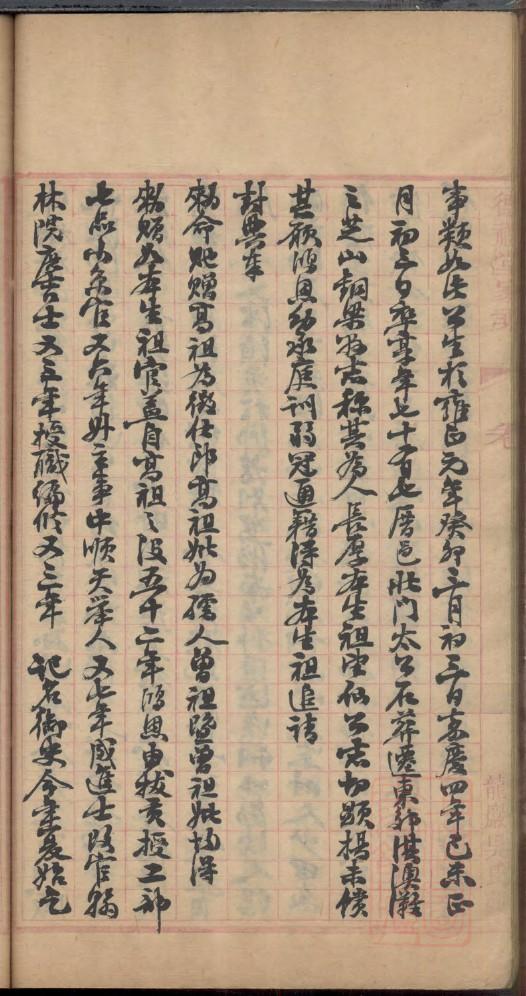 事類如此公生於雍正元年癸卯三月初三日嘉慶四年己未正
月初三日卒享年七十有七厝邑北門太公石葬遷東郭淇澳灘
之芝山銅梁翁志稱其為人長厚本生祖望仙公嘗切顯揚未償
其願鴻恩幼承庭訓弱冠通籍得為本生祖追請
封典奉
勅命貤贈高祖為徵仕郎高祖妣為孺人曾祖暨曾祖妣均得
貤贈如本生祖官蓋自高祖之沒五十二年鴻恩由拔貢授工部
七品小京官又六年升主事中順天舉人又七年成進士改官翰
林院庶吉士又三年授職編修又三年 記名御史今年夏始乞